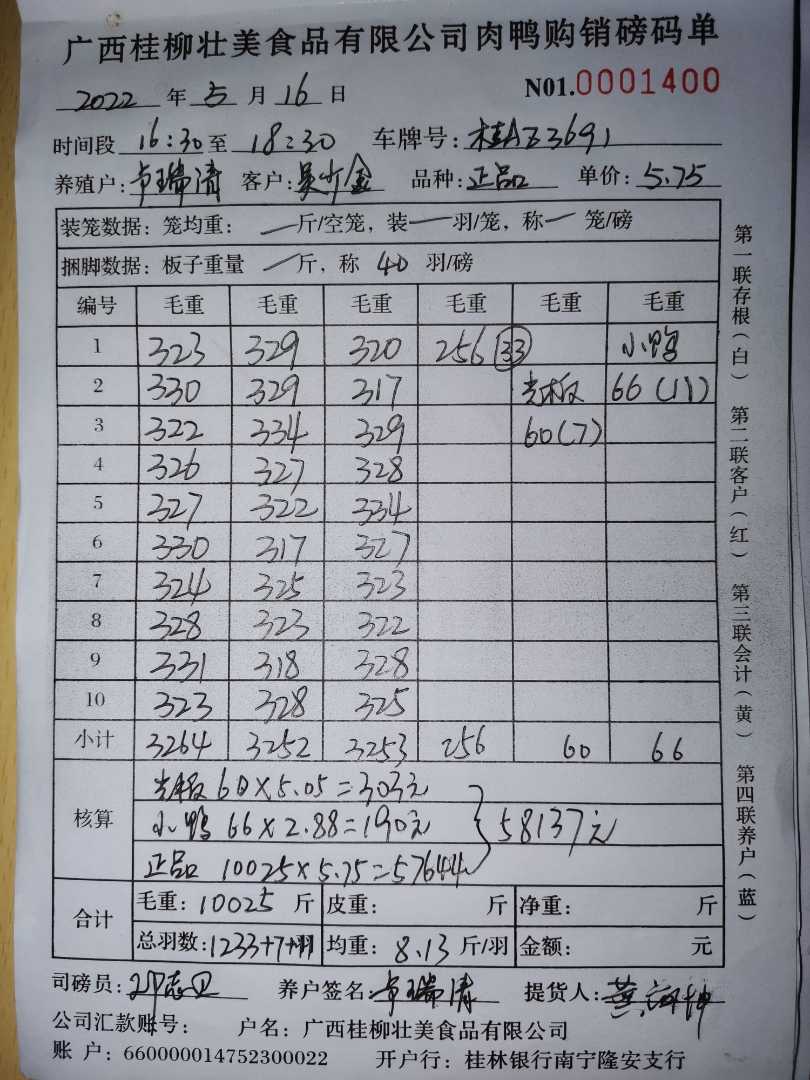 广西桂柳壮美食品有限公司肉鸭购销磅码单
2022 年 5 月 16 日 N01.0001400
时间段 16:30 至 18:30 车牌号: 桂AZ3691
养殖户: 卓瑞清 客户: 吴少金 品种: 正品 单价: 5.75
装笼数据: 笼均重: 一 斤/空笼, 装 一 羽/笼, 称 一 笼/磅
捆脚数据: 板子重量 一 斤, 称 40 羽/磅
编号 毛重 毛重 毛重 毛重 毛重 毛重
1 323 329 320 256 (33) 小鸭
2 330 329 317 光板 66 (11)
3 322 334 329 60 (7)
4 326 327 328
5 327 322 334
6 330 317 327
7 324 325 323
8 328 323 322
9 331 318 328
10 323 328 325
小计 3264 3252 3253 256 60 66
核算 光板 60×5.05=303元
小鸭 66×2.88=190元 } 58137元
正品 10025×5.75=57644
合计 毛重: 10025 斤 皮重: 斤 净重: 斤
总羽数: 1233+7+11 均重: 8.13 斤/羽 金额: 元
司磅员: 养户签名: 卓瑞清 提货人:
公司汇款账号: 户名: 广西桂柳壮美食品有限公司
账 户: 660000014752300022 开户行: 桂林银行南宁隆安支行
第一联存根(白) 第二联客户(红) 第三联会计(黄) 第四联养户(蓝)